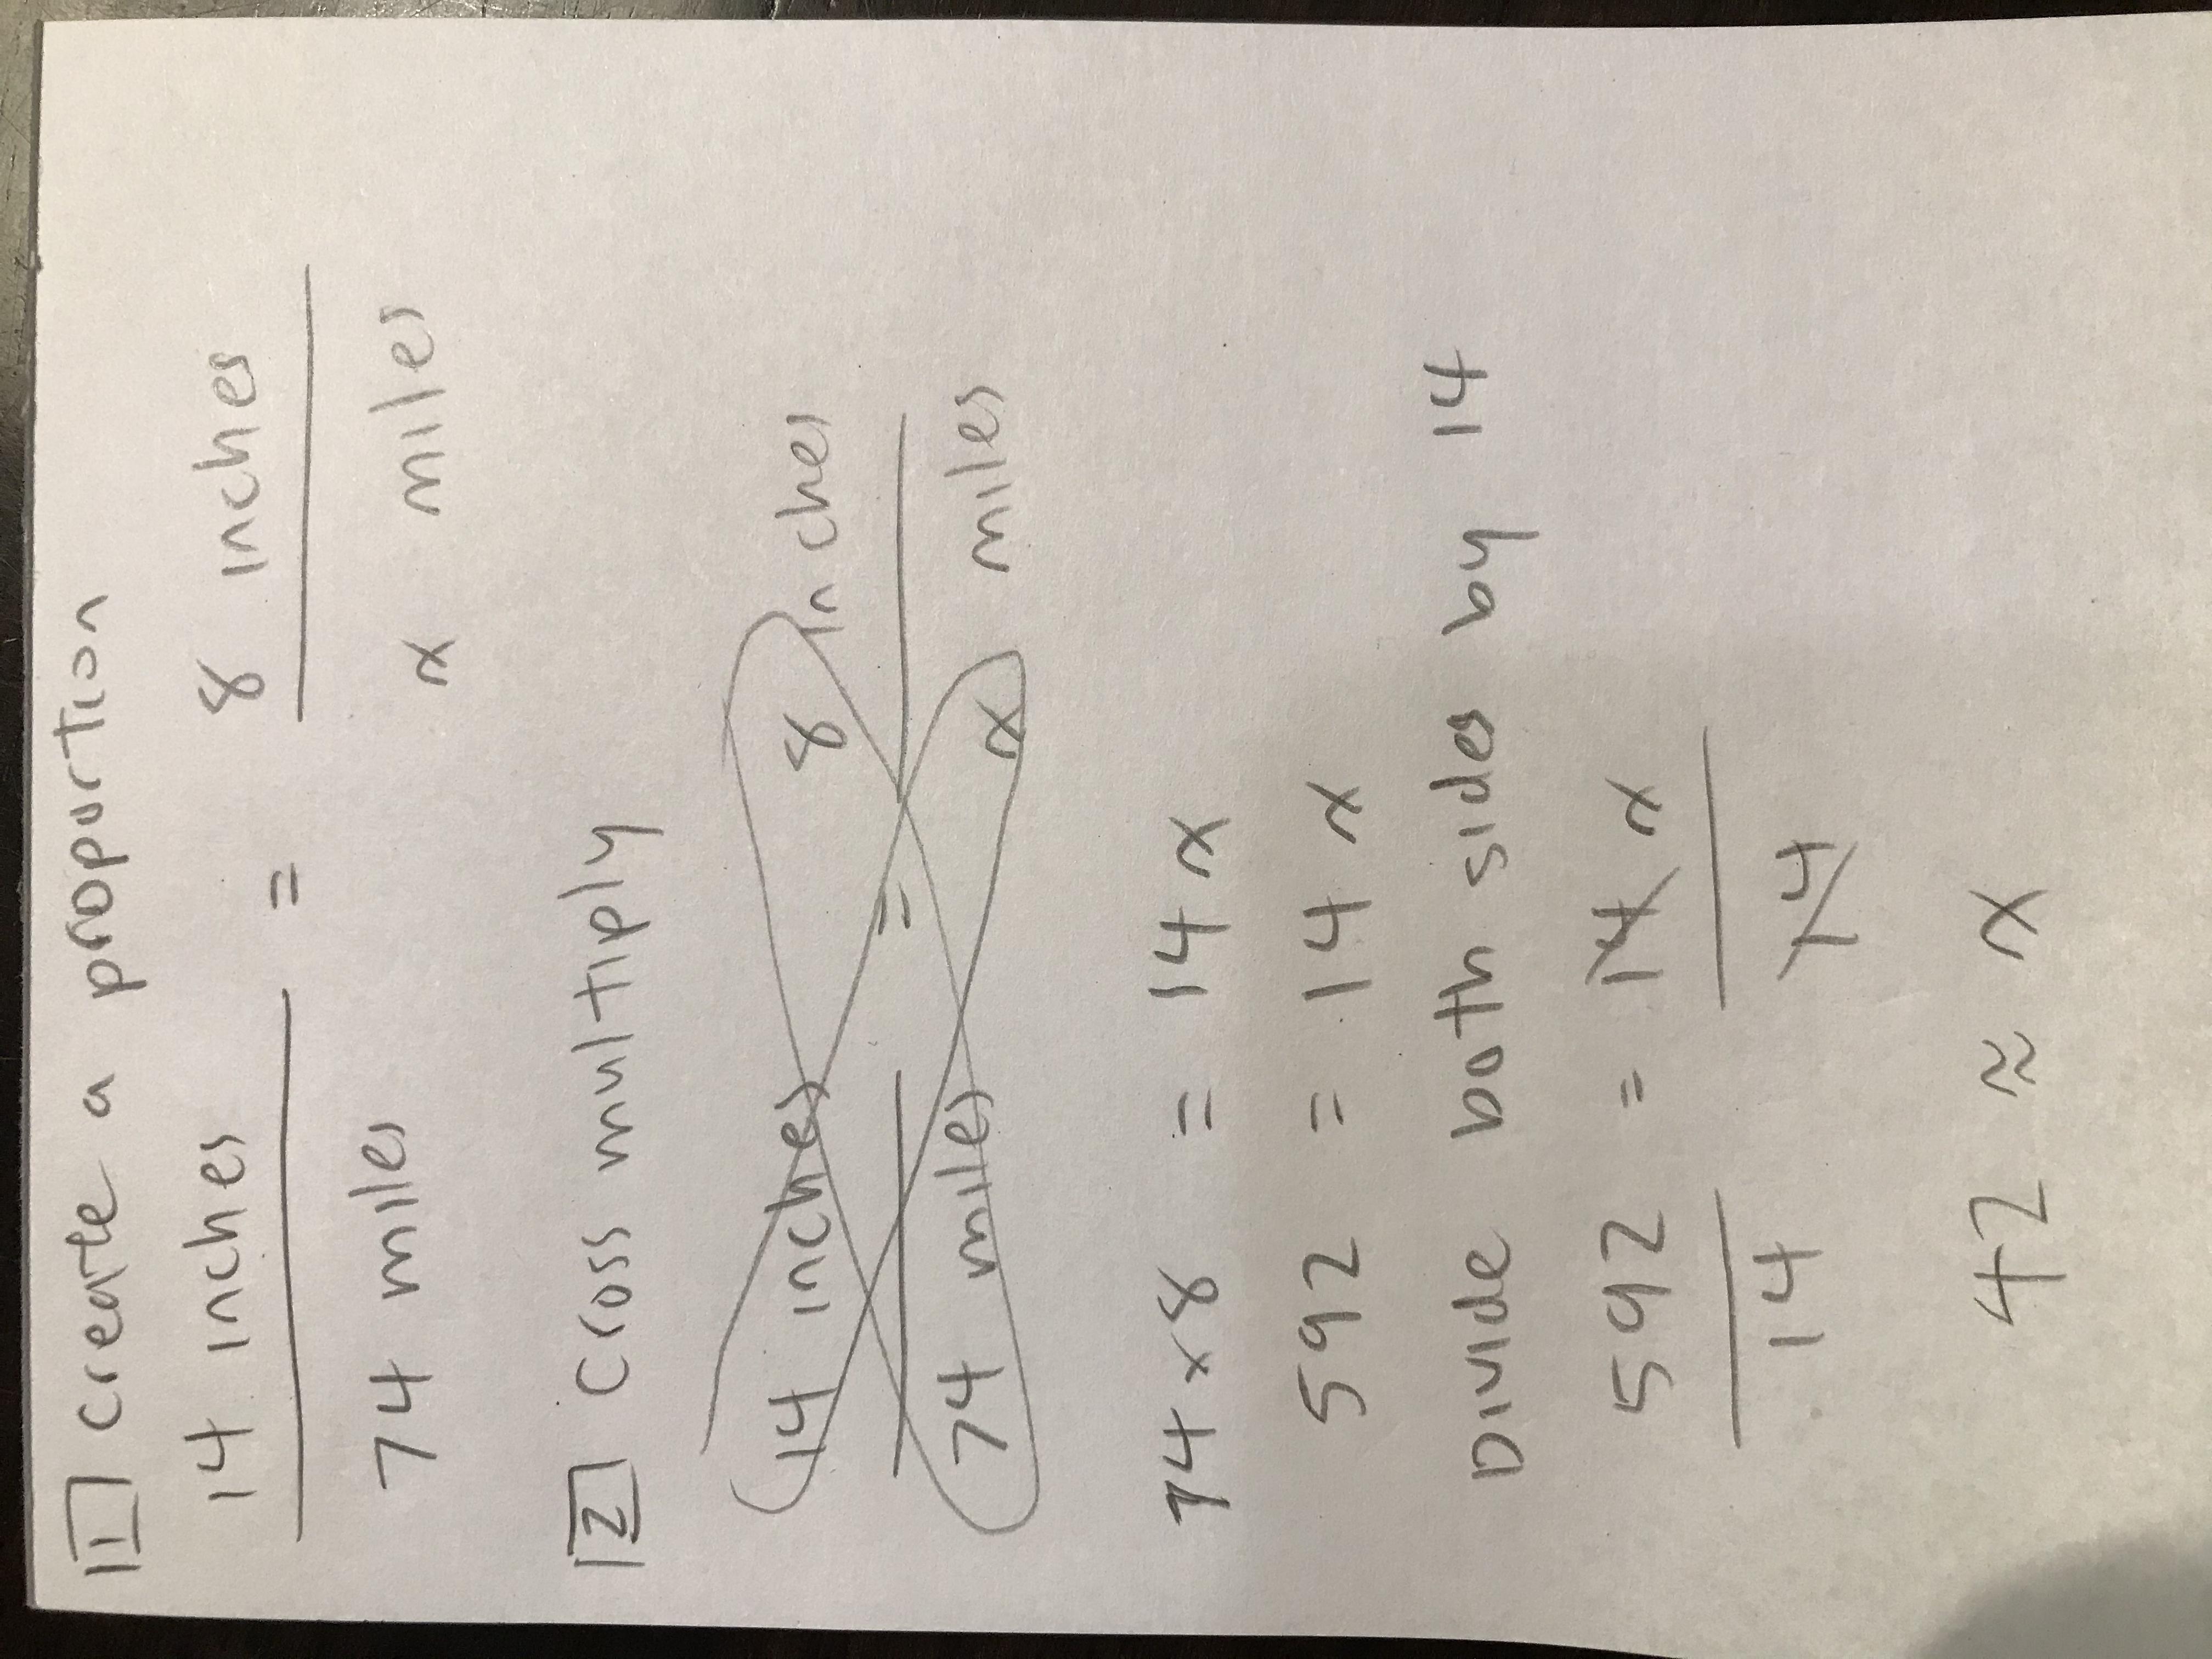 1 Create a proportion
14 inches = 8 inches
74 miles x miles
2 Cross multiply
14 inches = 8 inches
74 miles x miles
74 x 8 = 14 x
592 = 14 x
Divide both sides by 14
592 = 14 x
14 14
42 ≈ x